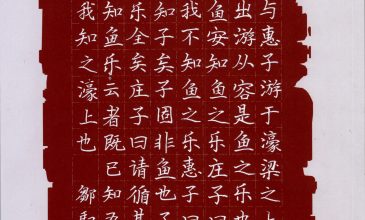 与惠子游于濠梁之上
出游从容是鱼之乐也
鱼安知鱼之乐庄子曰
我不知鱼之乐惠子曰
知子矣子固非鱼也子
乐全矣庄子曰请循其
知鱼乐云者既已知吾
我知之濠上也 邹